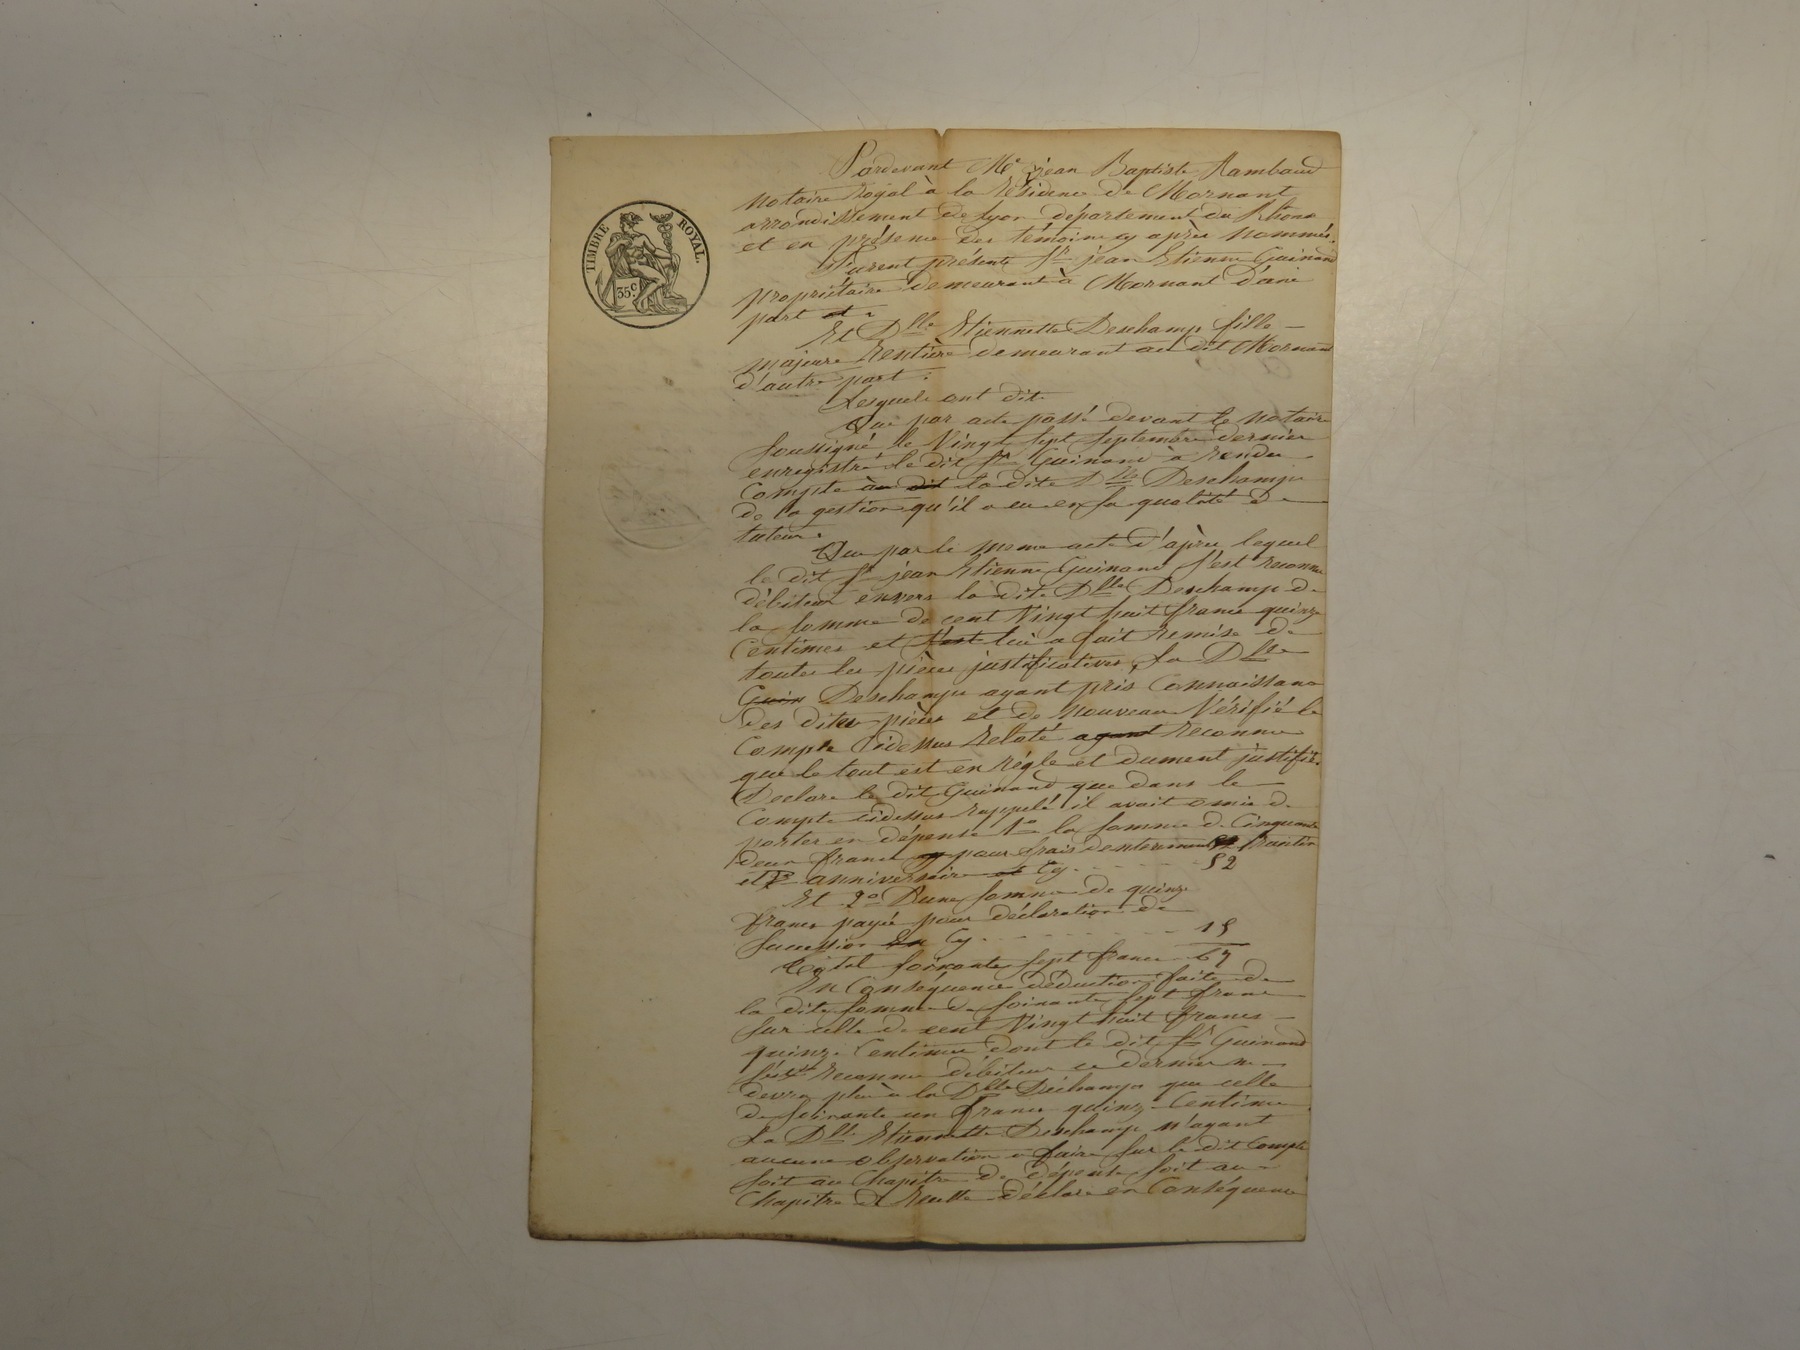 TIMBRE ROYAL.
35c.
Pardevant Me jean Baptiste Rambaud
notaire Royal à la Résidence de Mornant
arrondissement de Lyon département du Rhone
et en présence des témoins cy après nommés.
Furent présents Sr jean Etienne Guinand
propriétaire demeurant à Mornant d'une
part et :
Et Dlle Etiennette Deschamps fille
majeure Rentière demeurant au dit Mornant
d'autre part :
Lesquels ont dit
Que par acte passé devant le notaire
soussigné le Vingt sept Septembre dernier
enregistré le dit Sr Guinand à rendu
Compte au dit la dite Dlle Deschamps
de la gestion qu'il a eu en sa qualité de
tuteur.
Que par le meme acte d'après lequel
le dit Sr jean Etienne Guinand s'est reconnu
débiteur envers la dite Dlle Deschamps de
la somme de cent Vingt huit francs quinze
Centimes et s'est lui a fait remise de
toutes les pièces justificatives, La Dlle
Guin Deschamps ayant pris Connaissance
des dites pièces et de nouveau Vérifié le
Compte Cidessus Relaté ayant reconnu
que le tout est en régle et dument justifié.
Declare le dit Guinand que dans le
Compte cidessus rappelé il avait omis de
porter en dépense 1o la somme de Cinquante
deux francs pour frais d'enterrement
et anniversaire et Cy 52
Et 2o D'une somme de quinze
francs payée pour déclaration de
succession Cy 15
Total soixante sept francs 67
En Conséquence déduction faite de
la dite somme de soixante sept francs
sur celle de cent Vingt huit francs
quinze Centimes dont le dit Sr Guinand
s'est reconnu débiteur ce dernier ne
devra plus à la Dlle Deschamps que celle
de soixante un francs quinze Centimes
La Dlle Etiennette Deschamps n'ayant
aucune observation à faire sur le dit Compte
soit au Chapitre de dépense soit au
Chapitre de Recette déclare en Conséquence